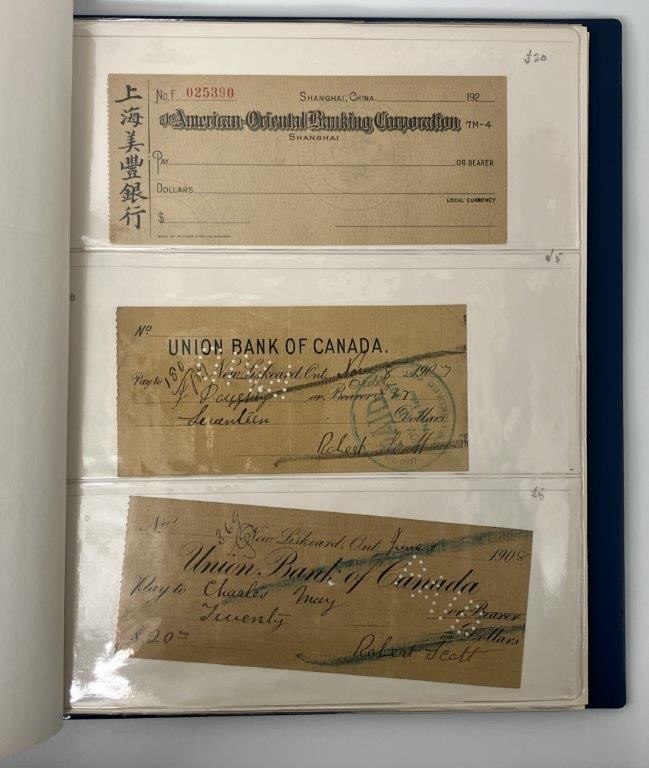 $20
上海美豐銀行
No. F 025390 SHANGHAI, CHINA 192
The American-Oriental Banking Corporation 7M-4
SHANGHAI
PAY OR BEARER
DOLLARS
LOCAL CURRENCY
$
$5
No
UNION BANK OF CANADA.
New Liskeard, Ont. Nov 8 1907
Pay to Doughty or Bearer $17
Seventeen Dollars
Robert Scott
PAID
$5
No
369
New Liskeard, Ont, June 5 1908
Union Bank of Canada
Pay to Charles May or Bearer
Twenty Dollars
$20 00
Robert Scott